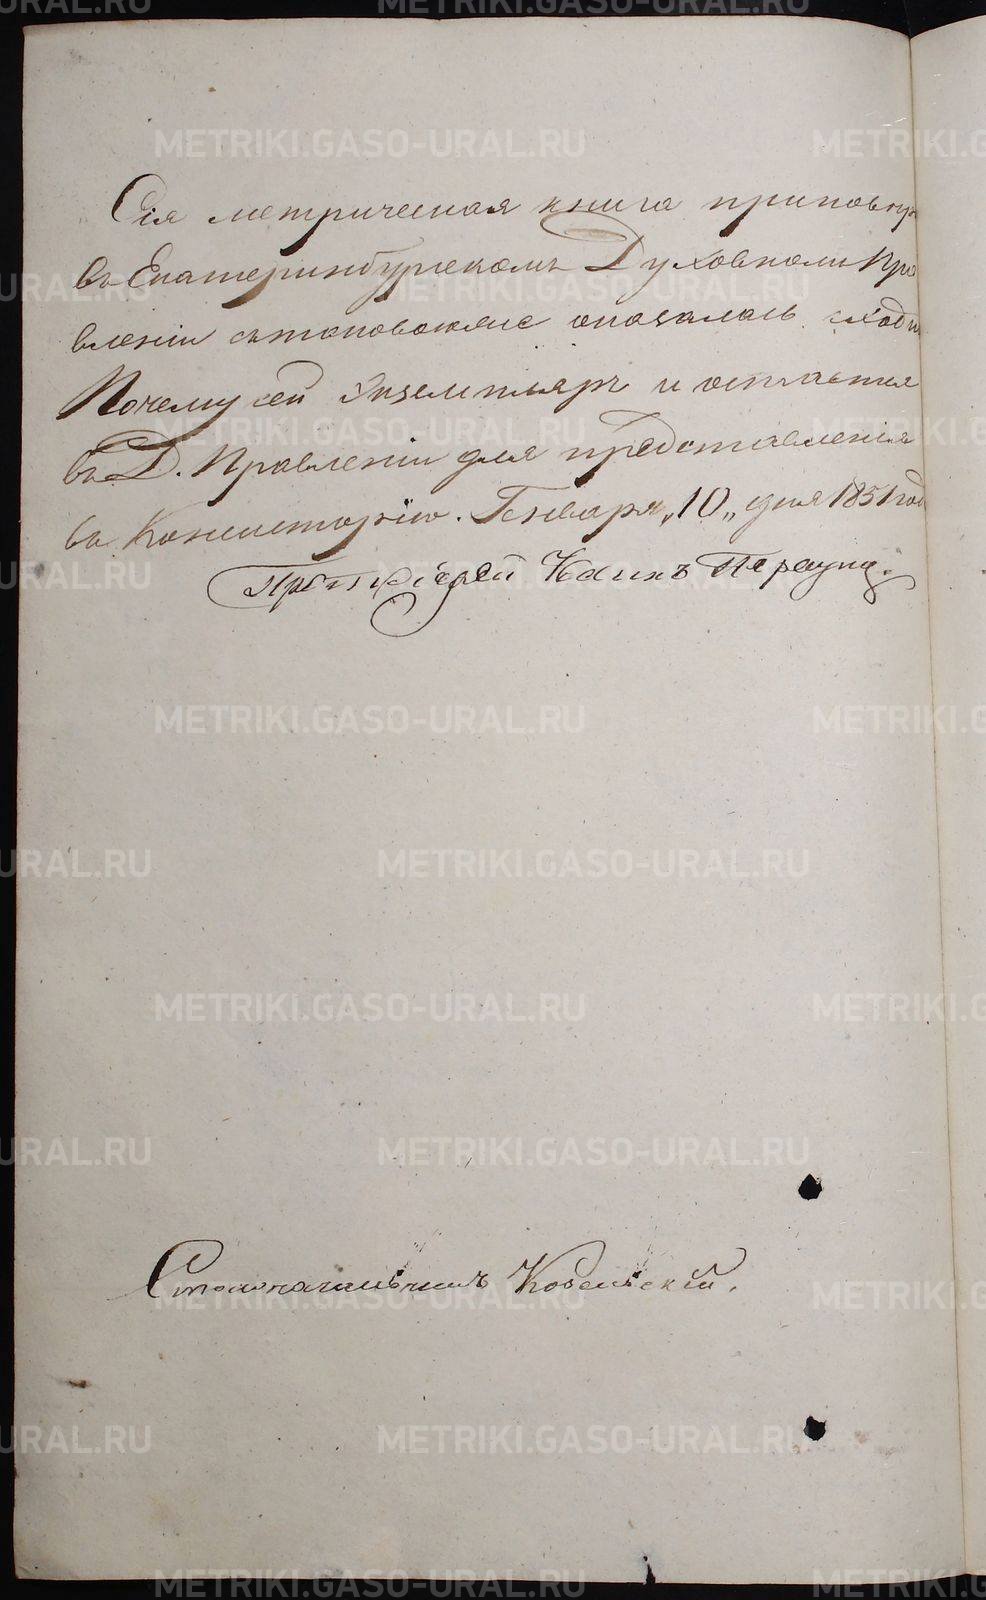 Сія метрическая книга при повѣр
въ Екатеринбургскомъ Духовномъ Пра
вленіи съ таковою же оказалась сходн
Почему сей Экземпляръ и оставленъ
въ Д. Правленіи для представленія
въ Консисторію. Генваря „10„ дня 1851 год
Протоіерей Іоаннъ
Столоначальникъ Кобельскій.
METRIKI.GASO-URAL.RU